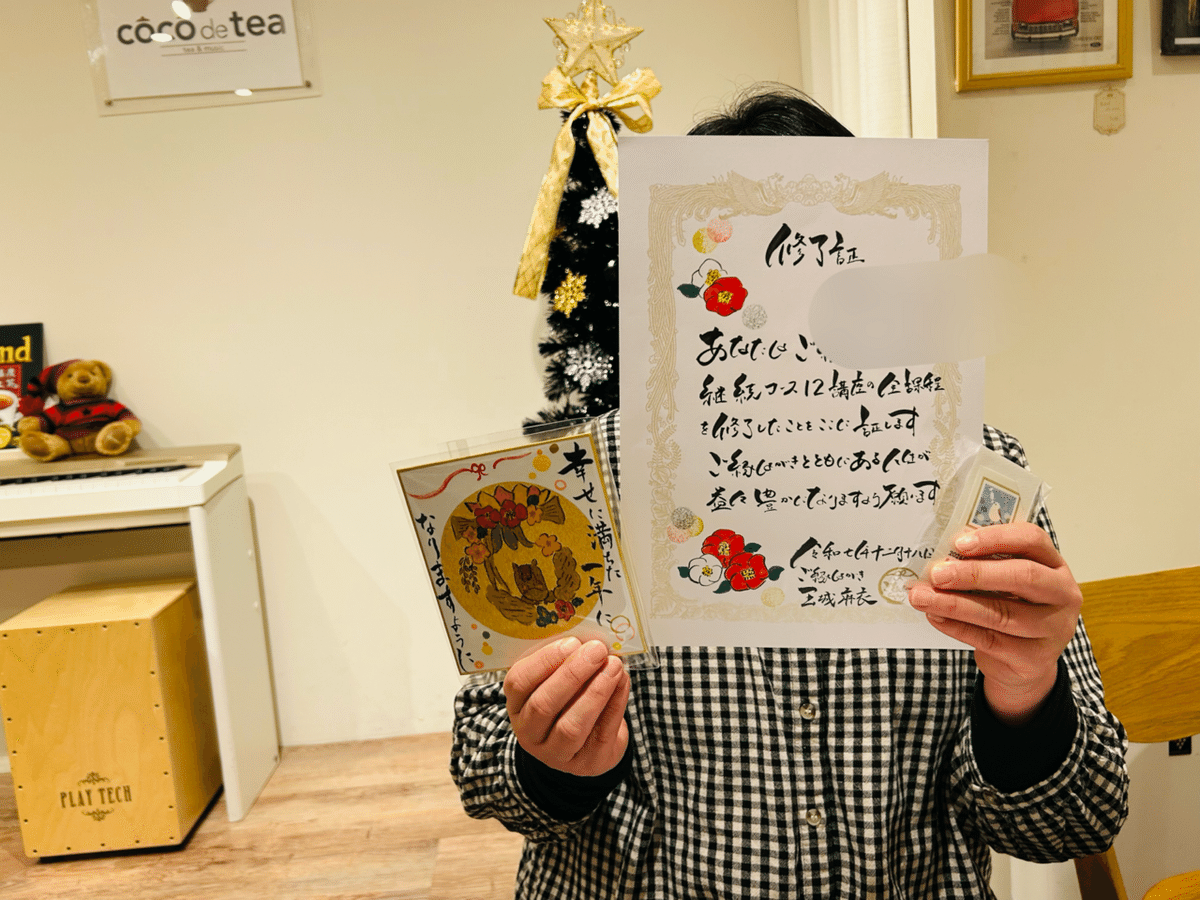 côco de tea
tea & music
nd
修了証
あなたは ご
継続コース12講座の全課程
を修了したことをここに証します
ご縁はがきとともにある人生が
益々豊かになりますよう願います
令和七年十二月十八日
ご縁はがき
玉城麻衣
幸せに満ちた
一年に
なりますように
PLAY TECH